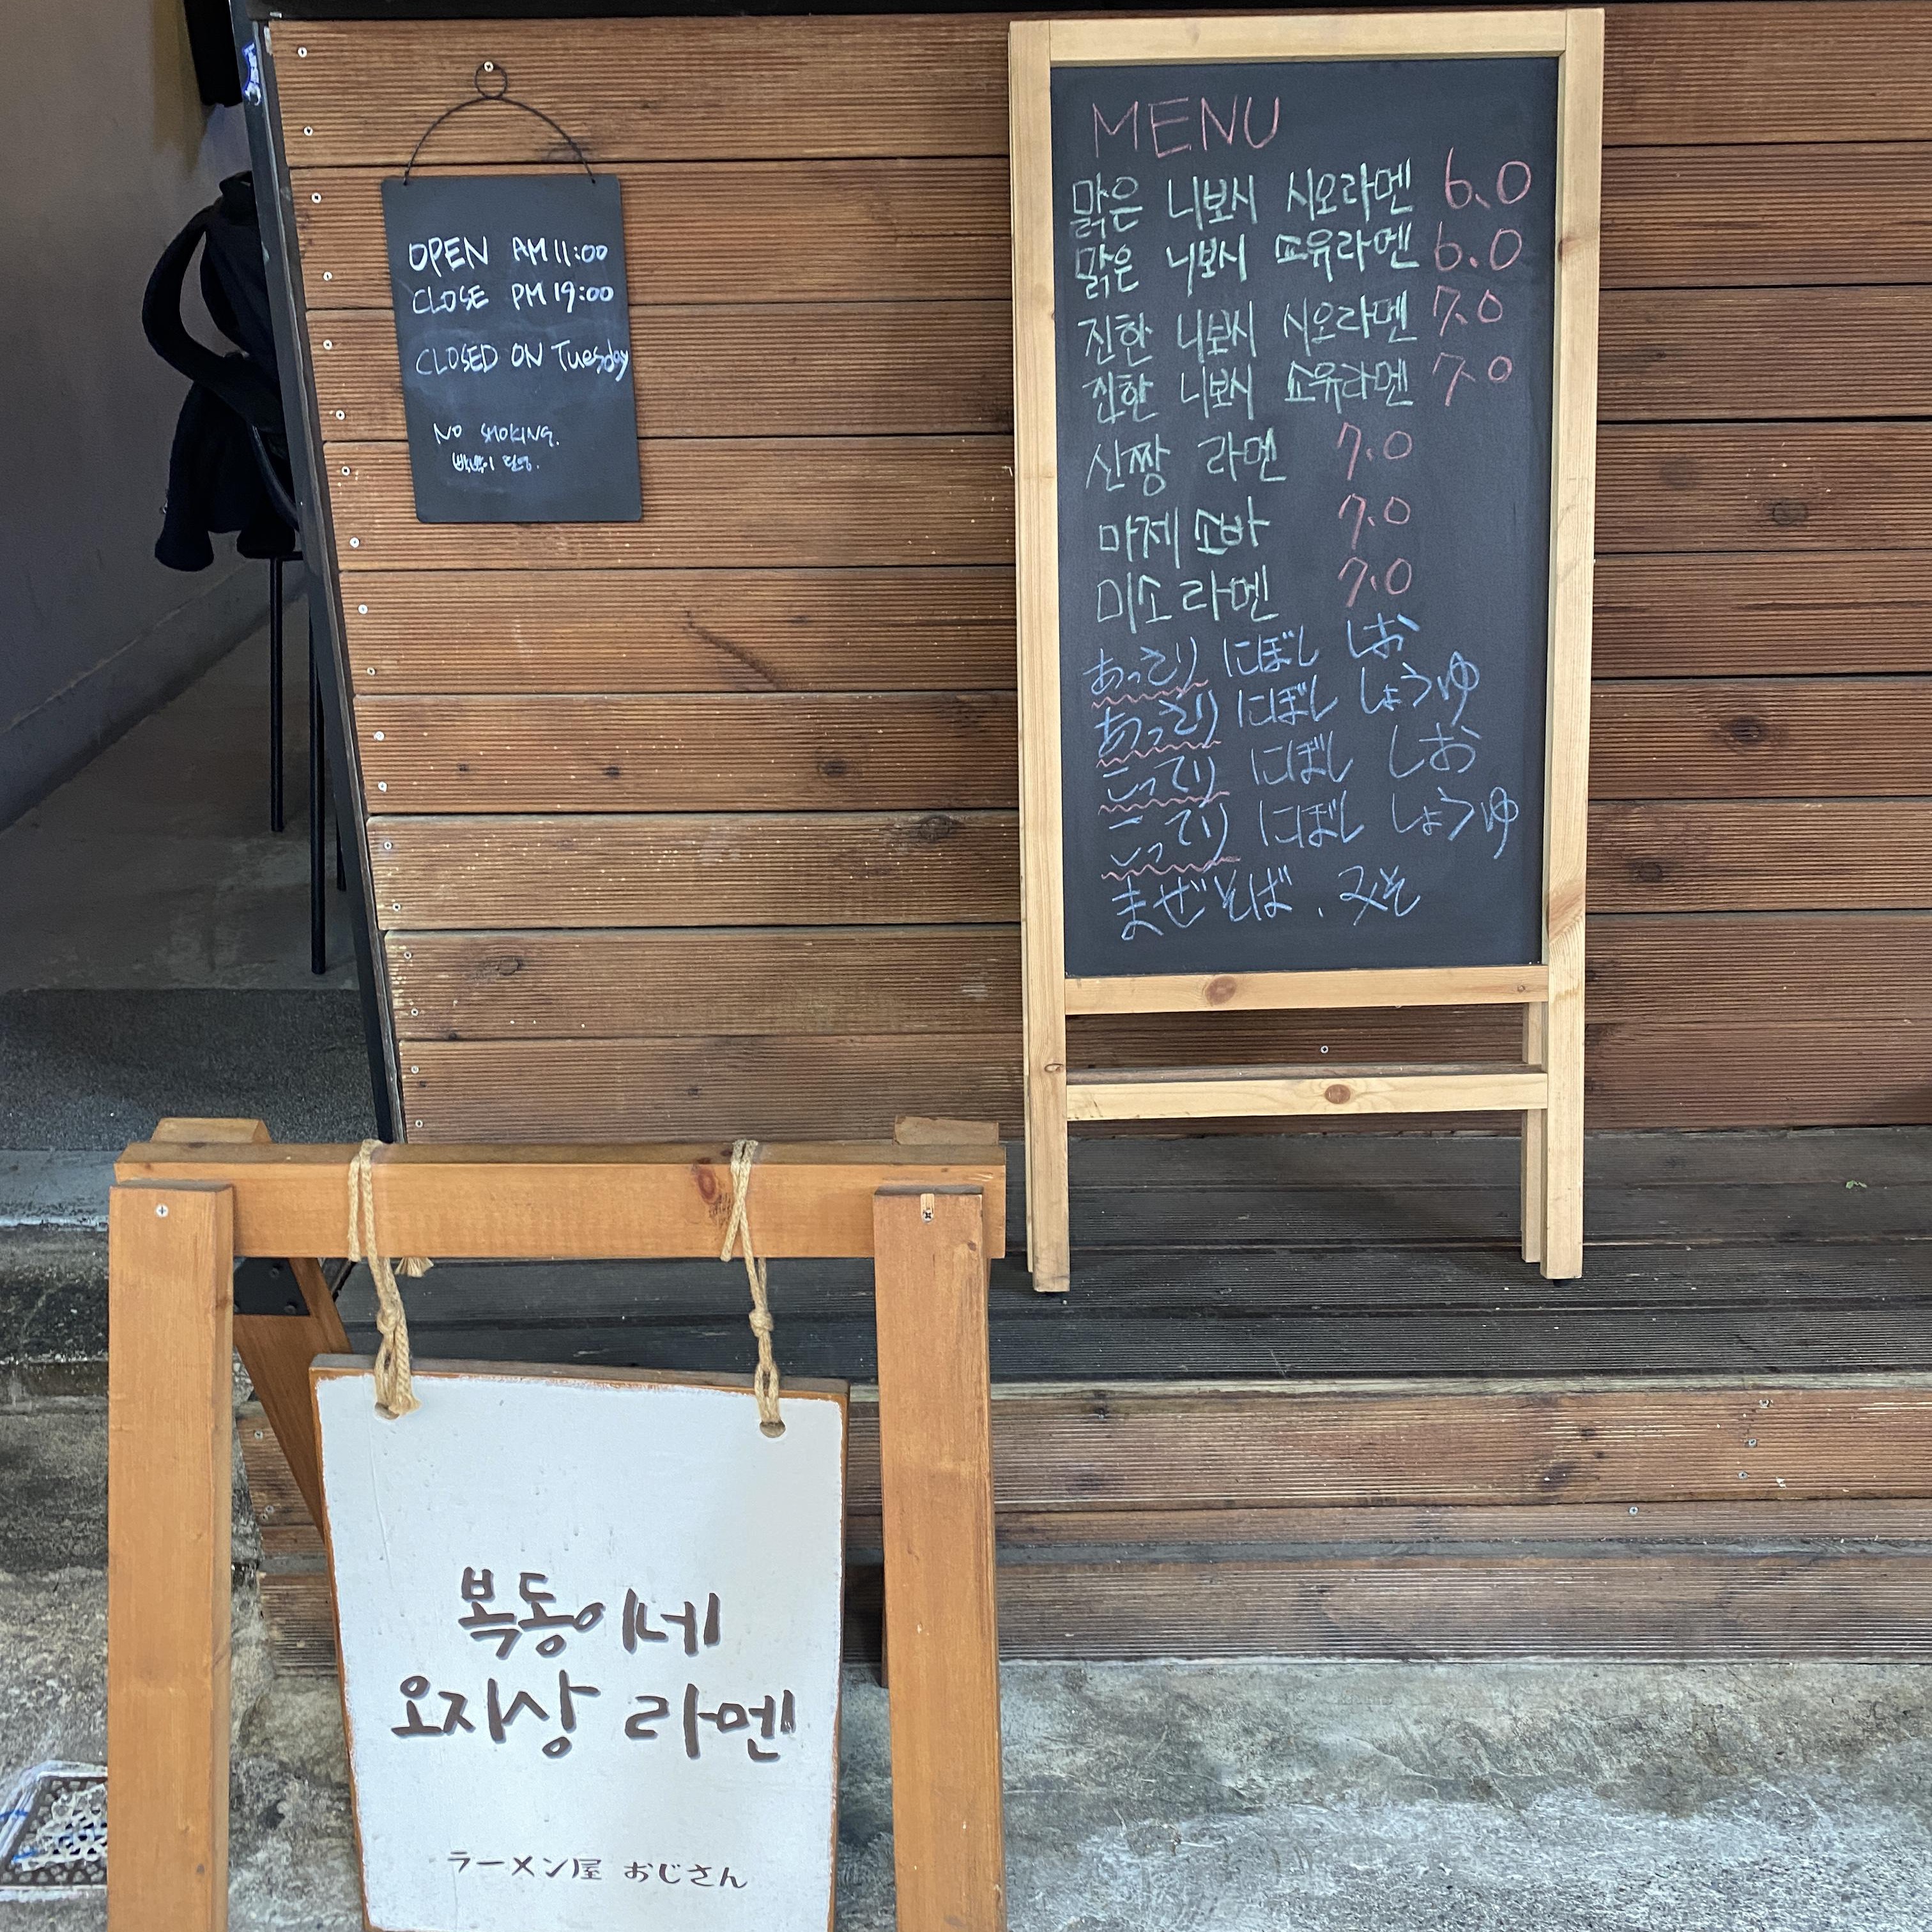 OPEN AM 11:00
CLOSE PM 19:00
CLOSED ON Tuesday
NO SMOKING.
MENU
맑은 니보시 시오라멘 6.0
맑은 니보시 쇼유라멘 6.0
진한 니보시 시오라멘 7.0
진한 니보시 쇼유라멘 7.0
신짱 라멘 7.0
마제소바 7.0
미소라멘 7.0
あっさり にぼし しお
あっさり にぼし しょうゆ
こってり にぼし しお
こってり にぼし しょうゆ
まぜそば、みそ
복동이네
오지상 라멘
ラーメン屋 おじさん